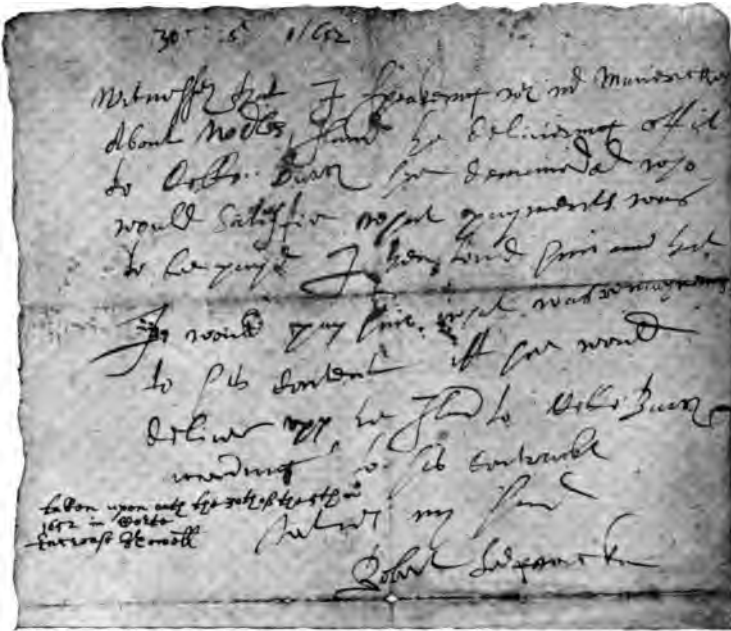 30 : 5 1652
Witnesseth that I speaking wth mr Mavericke
About Nodles Iland the delivering off it
to Collo: Burch he demanded who
would satisfie what payments was
to be payd I then tould him that
I would pay him what was remayning
to his content iff hee would
deliver upp the Iland to Coll: Burch
to his contract
my hand
Robert Sedgwicke
taken upon oath the 30th of the 5th m
1652 in Corte
Increase Nowell